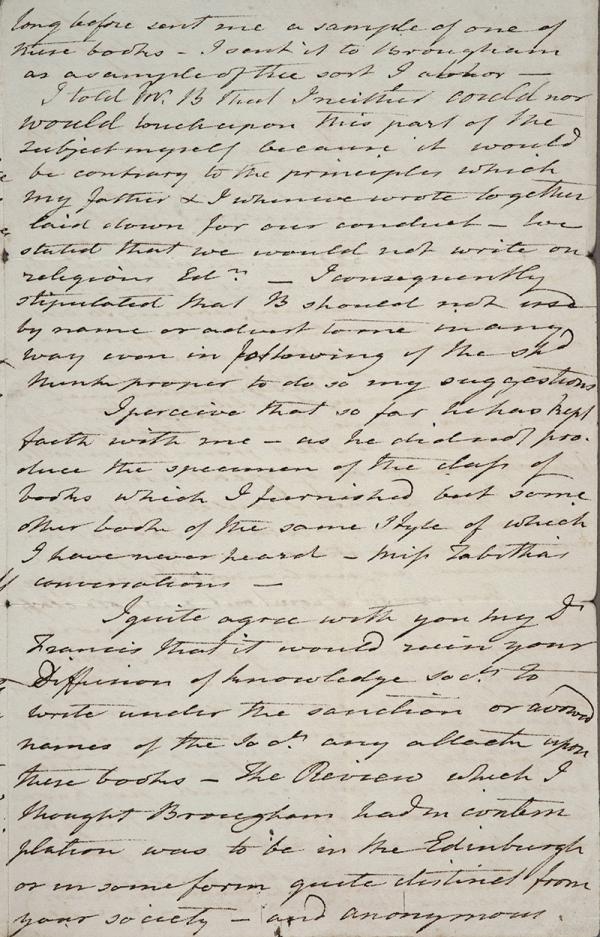 long before sent me a sample of one of
these books – I sent it to Brougham
as a sample of the sort I abhor —
I told Mr. B that I neither could nor
would touch upon this part of the
subject myself because it would
be contrary to the principles which
my father & I whenever we wrote together
laid down for our conduct – We
stated that we would not write on
religious Edn – I consequently
stipulated that B should not use
by name or advert to me in any
way even in following if he shd
think proper to do so my suggestions
I perceive that so far he has kept
faith with me – as he did not pro-
duce the specimen of the class of
books which I furnished but some
other book of the same style of which
I have never heard – Miss Tabitha's
conversations —
I quite agree with you my Dr
Francis that it would ruin your
Diffusion of knowledge socty to
write under the sanction or avowed
names of the Socty any attack upon
these books – The Review which I
thought Brougham had in contem
plation was to be in the Edinburgh
or in some form quite distinct from
your society – and anonymous.